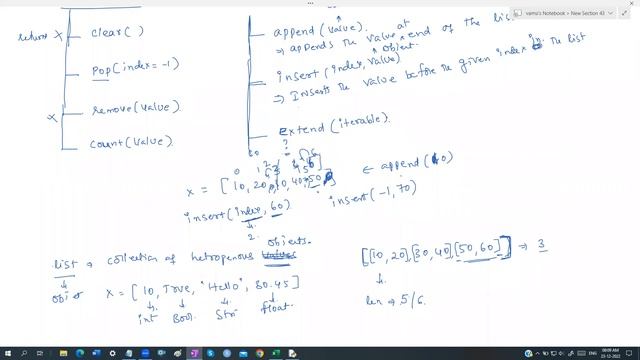 vamu's Notebook > New Section 43
return X clear( )
pop(index=-1)
X remove(value)
count(value)
append(value).
⇒ appends the value at end of the lis
object.
insert(index, value)
⇒ Inserts the value before the given index in the list
extend(iterable).
x = [10, 20, 40, 50]
← append(40)
insert(index, 60)
2.
insert(-1, 70)
list → collection of heterogenous values objects.
x = [10, True, "Hello", 80.45]
int Bool. Str float.
[[10,20],[30,40],[50,60]] ⇒ 3
len ⇒ 5/6.
08:09 AM
23-12-2022